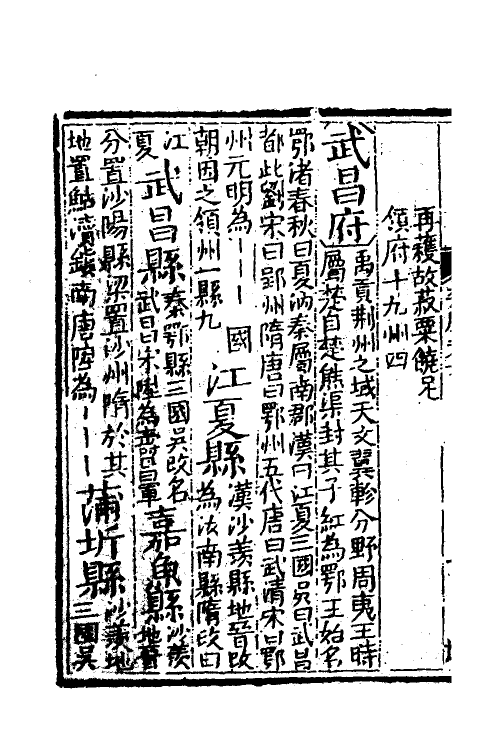 再穫故菽粟饒足
領府十九州四
武昌府 禹貢荆州之域天文翼軫分野周夷王時
屬楚自楚熊渠封其子紅為鄂王始名
鄂渚春秋曰夏汭秦屬南郡漢曰江夏三國吳曰武昌
都此劉宋曰郢州隋唐曰鄂州五代唐曰武清宋曰鄂
州元明為｜｜｜ 國 江夏縣 漢沙羨縣地晉改
朝因之領州一縣九 為汝南縣隋改曰
江 武昌縣 秦鄂縣三國吳改名 嘉魚縣 沙羨
夏 武昌宋陞為壽昌軍 地晉
分置沙陽縣梁置沙州隋於其 蒲圻縣 沙羨地
地置鮎瀆鎮南唐陞為｜｜｜ 三國吳